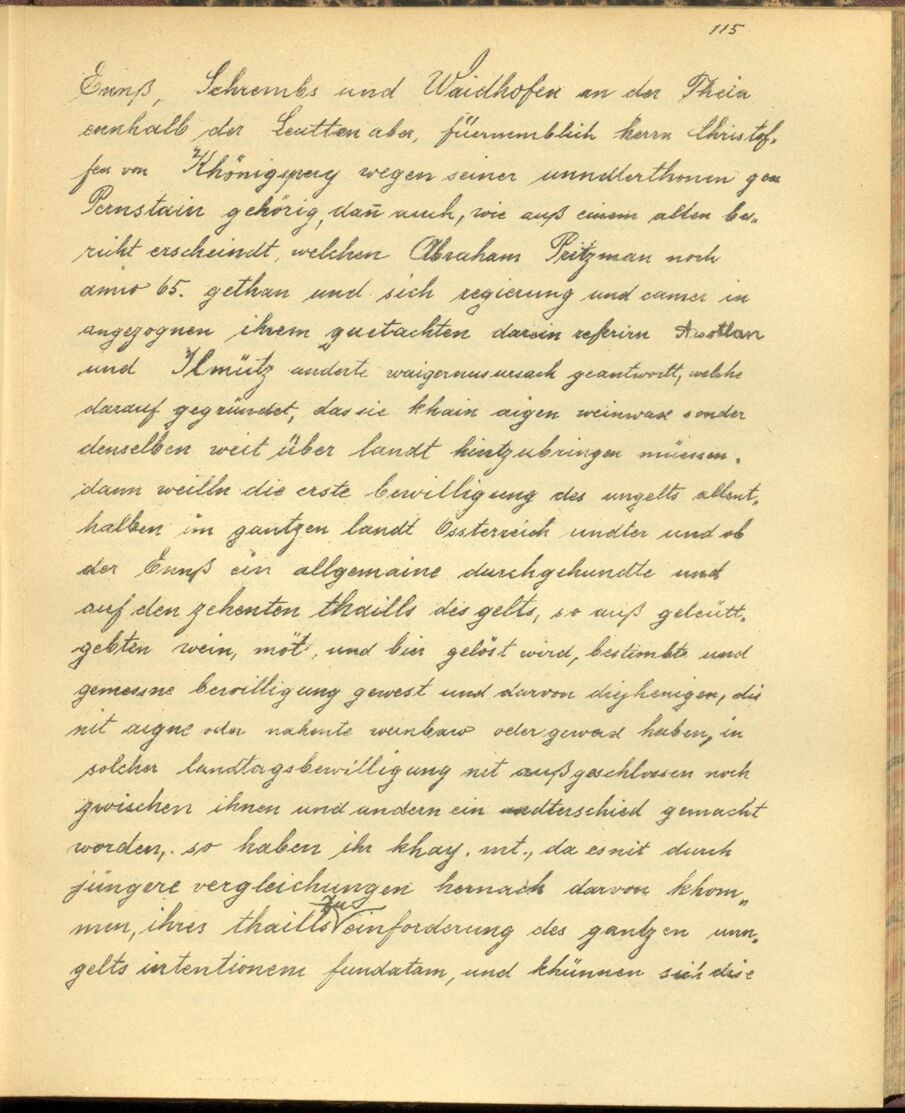 115
Ennß, Schrembs und Waidhofen an der Theia
ennhalb der Leutten aber, füernemblich herrn Christof-
fen von Khönigsperg wegen seiner unnderthonen gen
Pernstain gehörig, dan̄ auch, wie auß einem alten be-
richt erscheindt, welchen Abraham Pritzman noch
anno 65. gethan und sich regierung und camer in
angezognen ihrem guetachten darein referirn
und Ilmütz anderte waigernusursach geantwortt, welche
darauf gegründet, das sie khain aigen weinwax sonder
denselben weit über landt hintzubringen müessen.
dann weilln die erste bewilligung des ungelts allent-
halben im gantzen landt Össterreich undter und ob
der Ennß ein allgemaine durchgehundte und
auf den zehenten thaills des gelts, so auß geleütt-
gebten wein, möt, und bier gelöst wird, bestimbte und
gemessne bewilligung gewest und darvon diejhenigen, die
nit aigne oder nahente weinbaw oder gewexd haben, in
solcher landtagsbewilligung net außgeschlossen noch
zwischen ihnen und andern ein undterschied gemacht
worden, so haben ihr khay. mt., da es nit durch
jüngere vergleichungen hernach darvon khom-
men, ihres thaills zu einforderung des gantzen unn-
gelts intentionem fundatam, und khünnen sich die